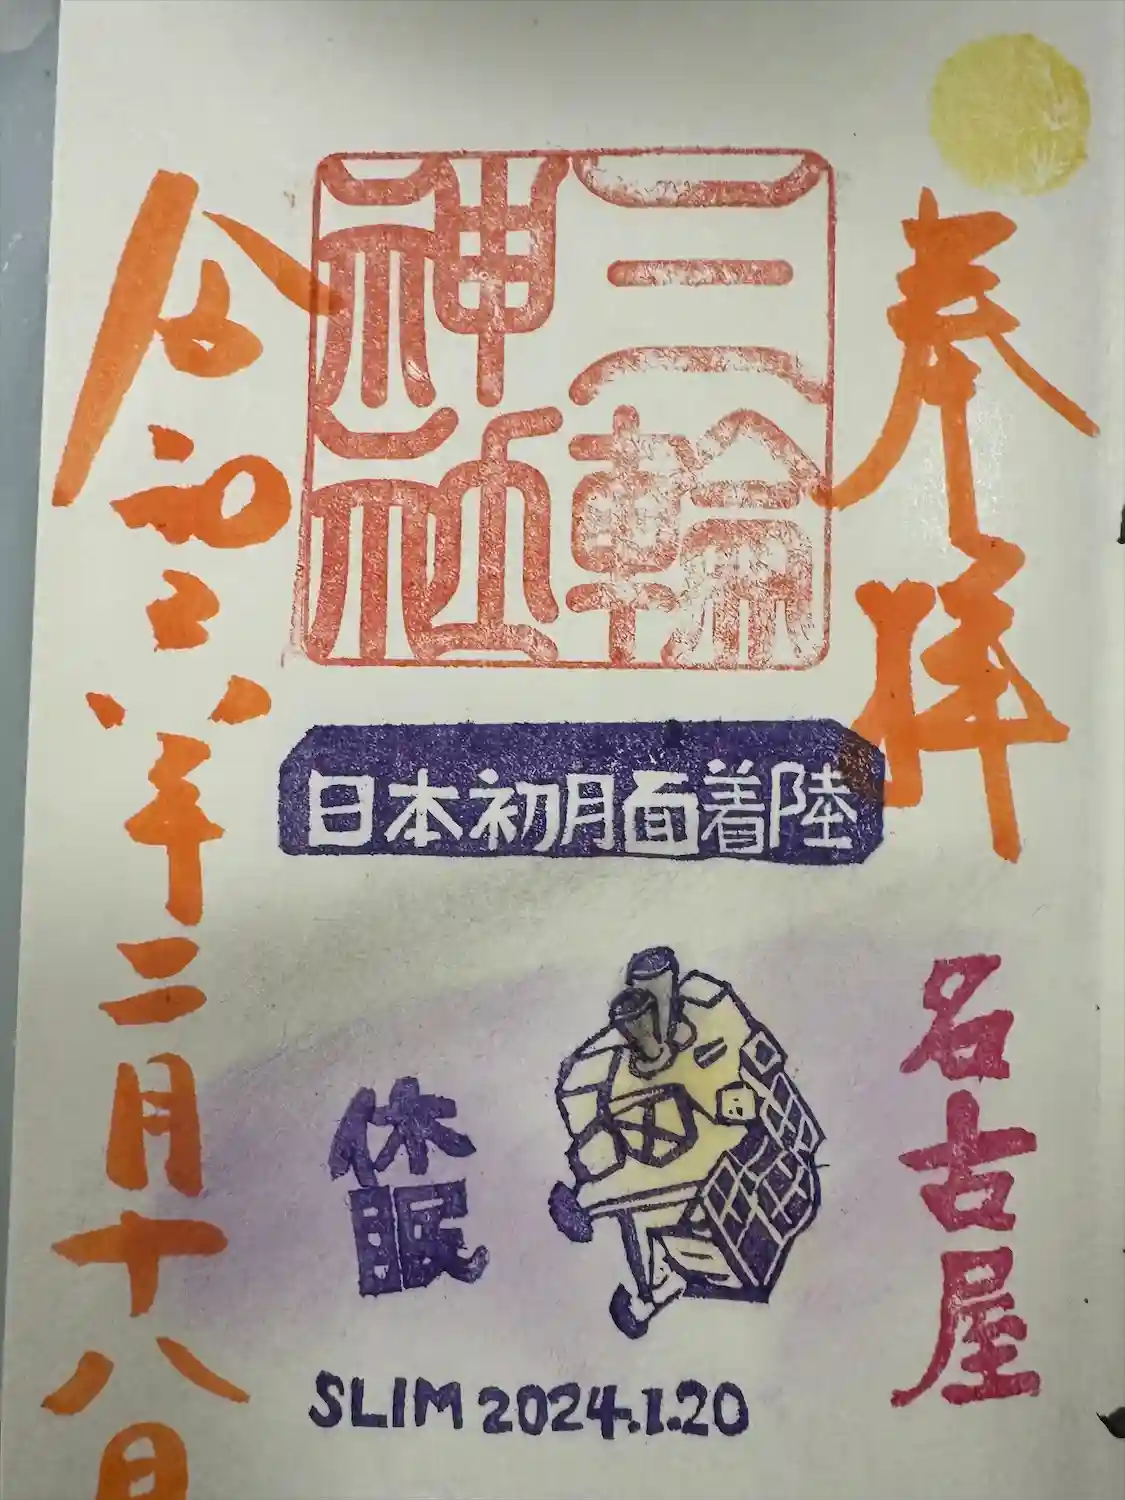 奉拝
名古屋
三輪神社
日本初月面着陸
休眠
SLIM 2024.1.20
令和六年二月十八日